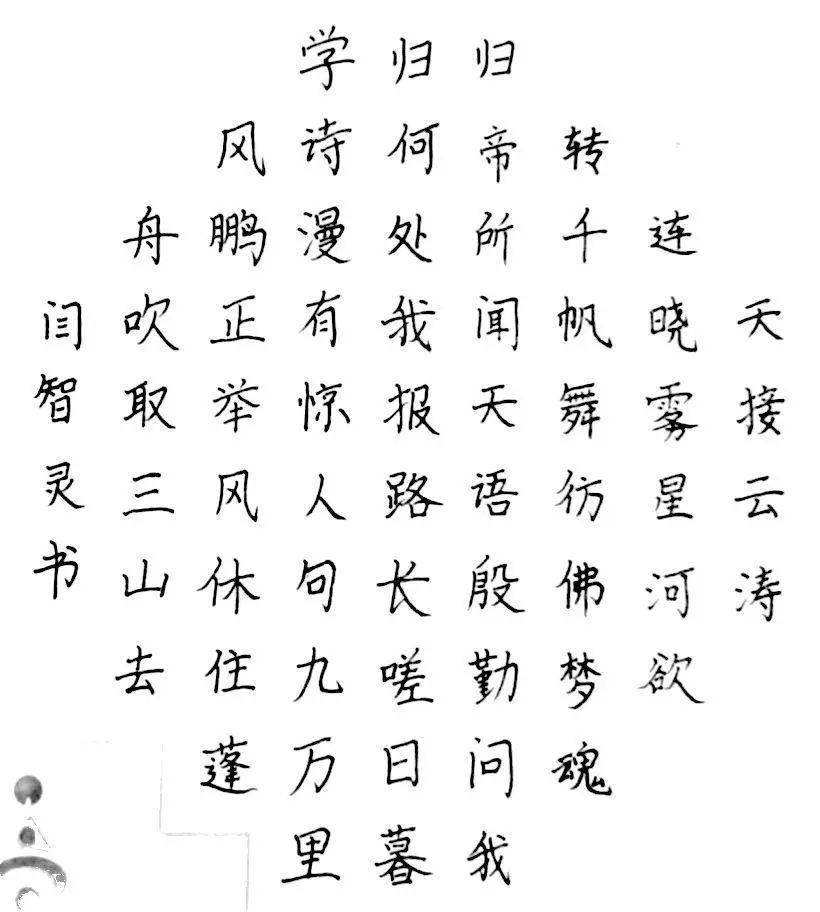 天接云涛
连晓雾星河欲
转千帆舞彷佛梦魂
归帝所闻天语殷勤问我
归何处我报路长嗟日暮
学诗漫有惊人句九万里
风鹏正举风休住蓬
舟吹取三山去
闫智灵书